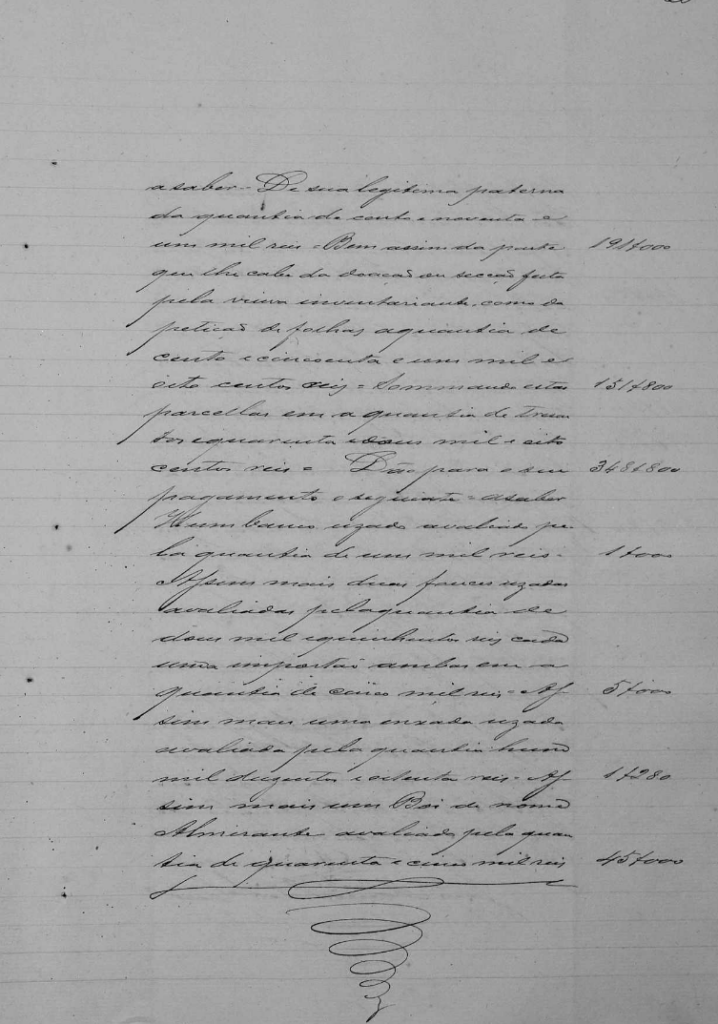 a saber = De sua legitima paterna
da quantia de cento e noventa e
um mil reis = Bem assim da parte 191$000
que lhe cabe da doacão ou secção feita
pela viuva inventariante, como da
peticão de folhas a quantia de
cento e cincoenta e um mil e
oito centos reis = Sommando estas 151$800
parcellas em a quantia de trezen
tos e quarenta e dous mil e oito
centos reis = Dão para o seu 348$800
pagamento o seguinte = a saber
Hum banco uzado avaliado pe
la quantia de um mil reis = 1$000
Assim mais duas fouces uzadas
avaliadas pela quantia de
dous mil e quinhentos reis cada
uma importão ambas em a
quantia de cinco mil reis = As 5$000
sim mais uma enxada uzada
avaliada pela quantia hum
mil duzentos e oitenta reis = As 1$280
sim mais um Boi de nome
Almirante avaliado pela quan
tia de quarenta e cinco mil reis 45$000